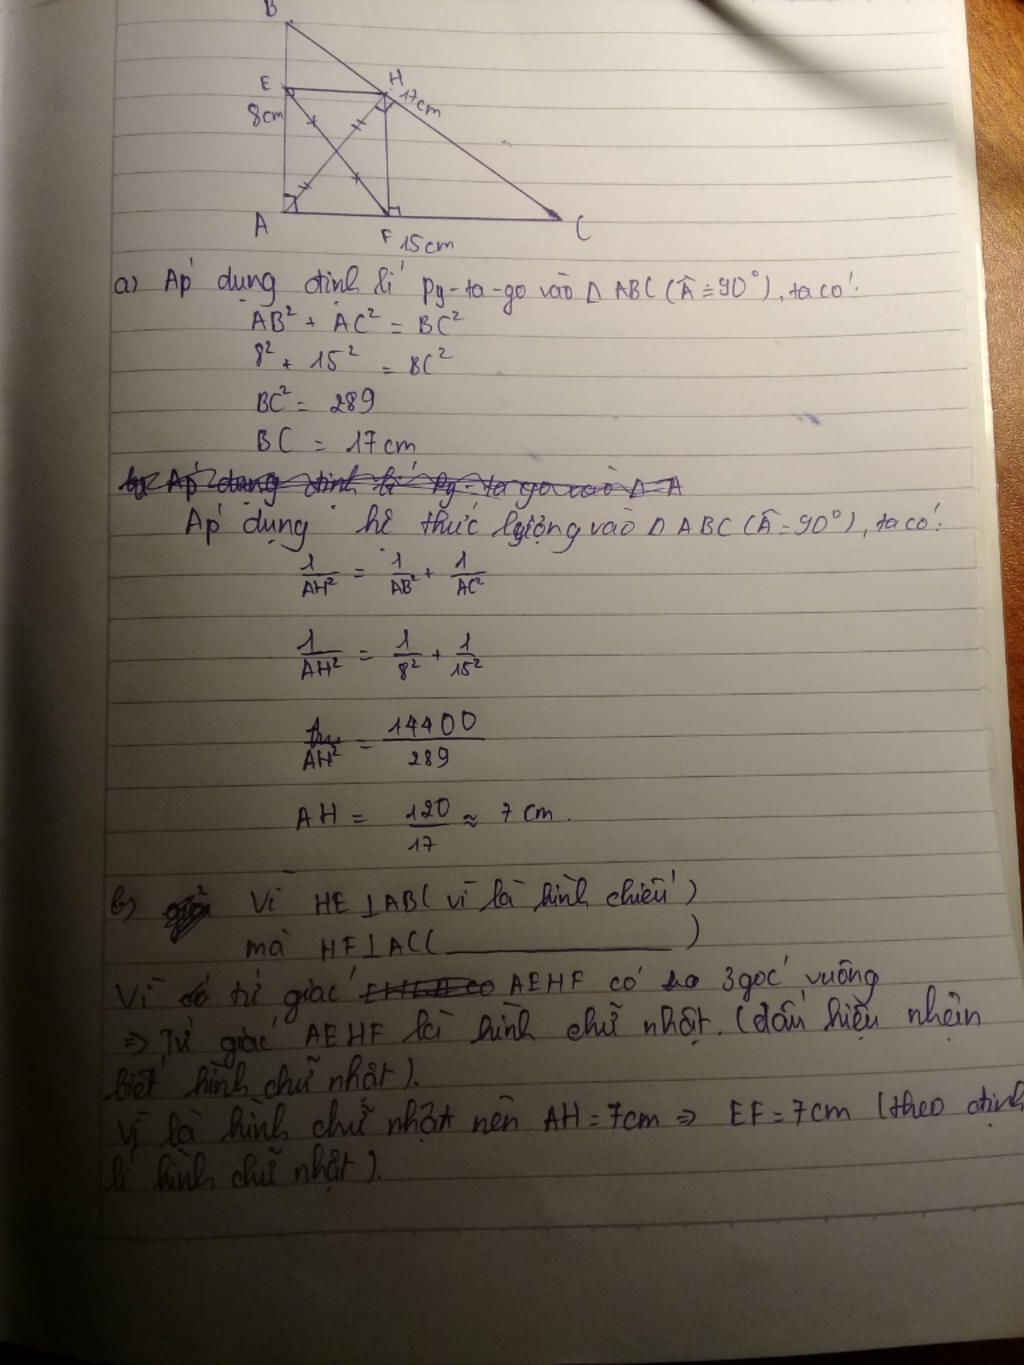 B
E
H
8cm
17cm
A
F
15cm
C
a) Áp dụng định lí Py-ta-go vào Δ ABC (Â = 90°), ta có:
AB² + AC² = BC²
8² + 15² = BC²
BC² = 289
BC = 17 cm
Áp dụng hệ thức lượng vào Δ ABC (Â = 90°), ta có:
1/AH² = 1/AB² + 1/AC²
1/AH² = 1/8² + 1/15²
AH² = 14400/289
AH = 120/17 ≈ 7 cm.
b) Vì HE ⊥ AB (vì là hình chiếu)
mà HF ⊥ AC ( ________ )
Vì tứ giác AEHF có 3 góc vuông
=> Tứ giác AEHF là hình chữ nhật. (dấu hiệu nhận
biết hình chữ nhật).
Vì là hình chữ nhật nên AH = 7cm => EF = 7cm (theo định
lí hình chữ nhật).